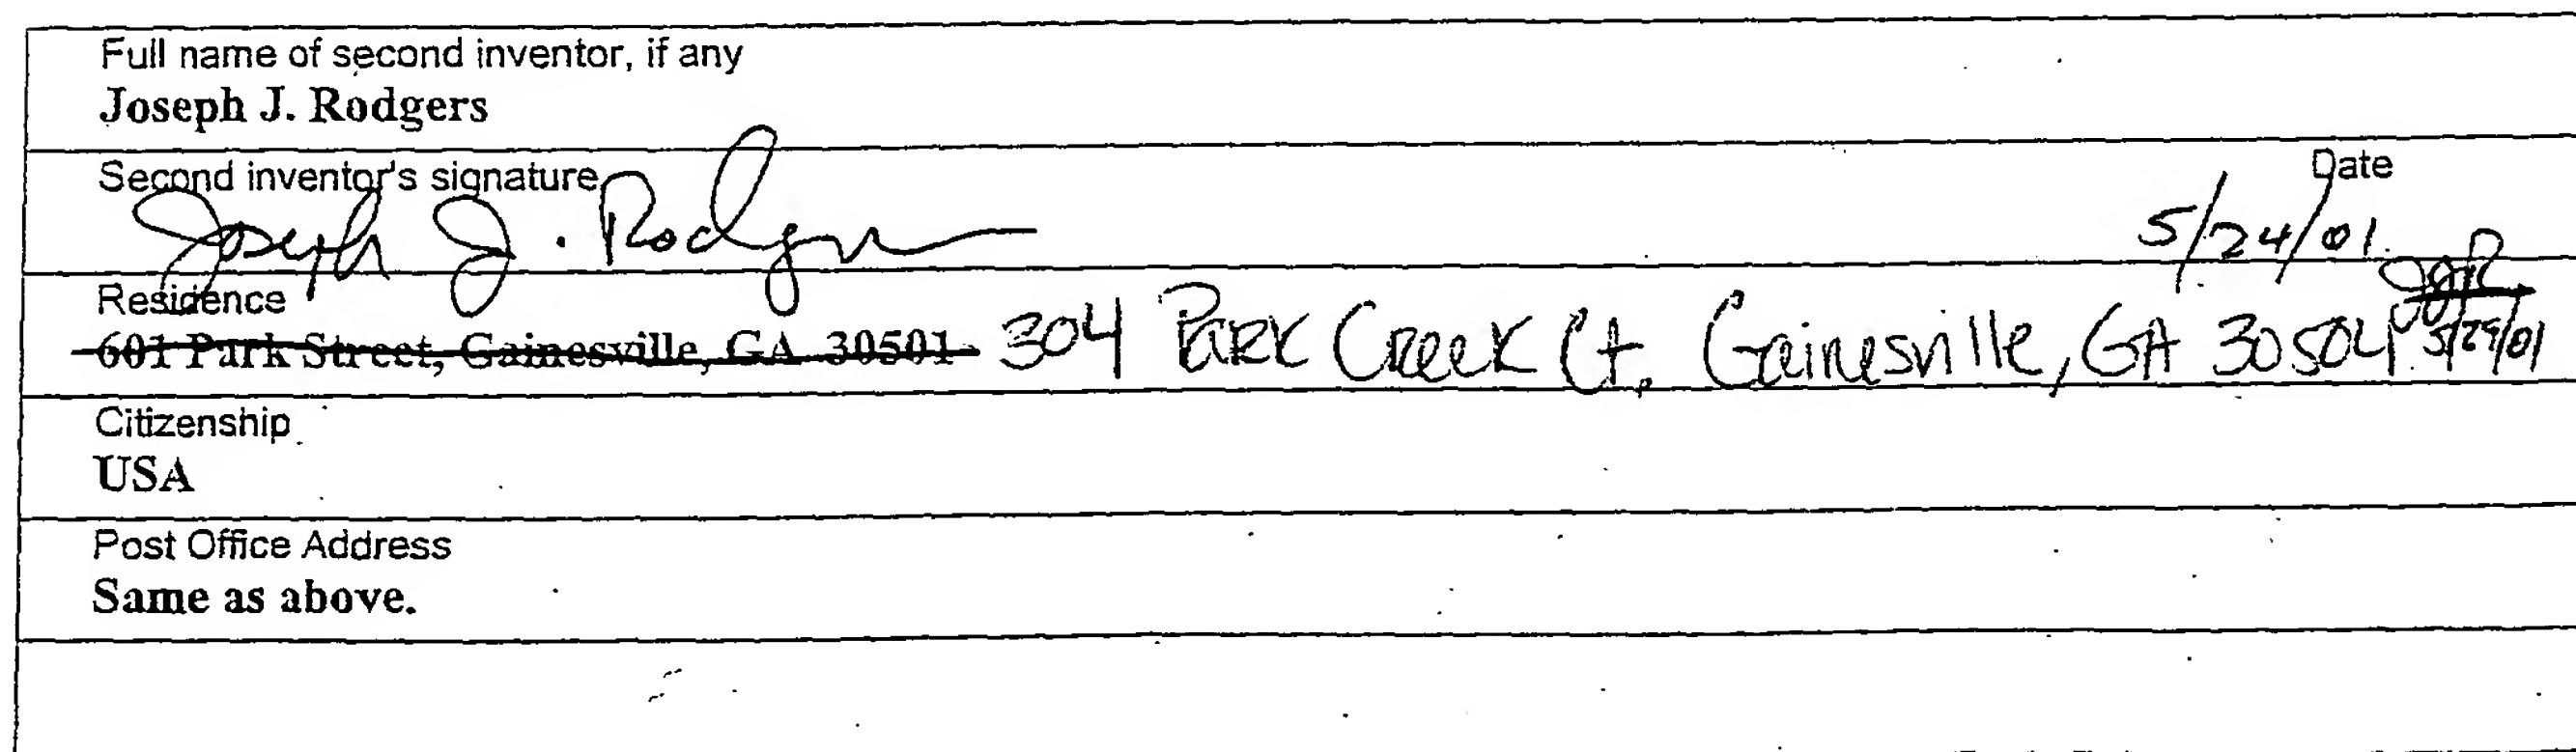 Full name of second inventor, if any
Joseph J. Rodgers
Second inventor's signature Date
Joseph J. Rodgers 5/24/01
Residence JJR
601 Park Street, Gainesville, GA 30501 304 Park Creek Ct. Gainesville, GA 30504 5/29/01
Citizenship
USA
Post Office Address
Same as above.